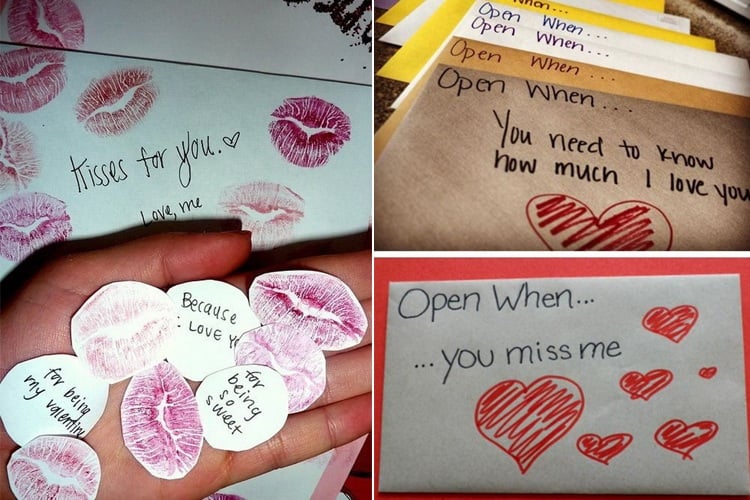 Kisses for you. ♡
Love, me
Because
I LOVE
for being
my valentin
for
being
so
sweet
when...
Open When...
Open When...
Open When...
Open When...
You need to know
how much I love you
Open When...
...you miss me